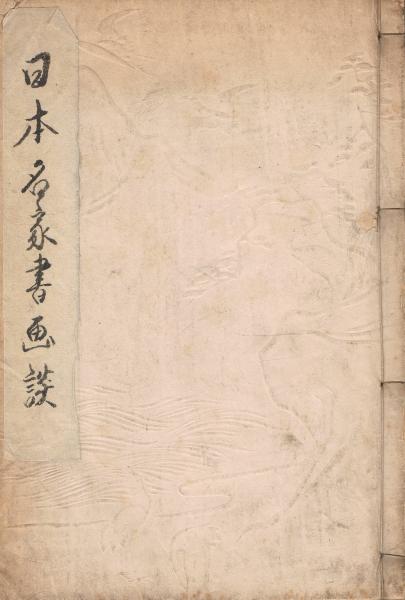 日本名家書画談